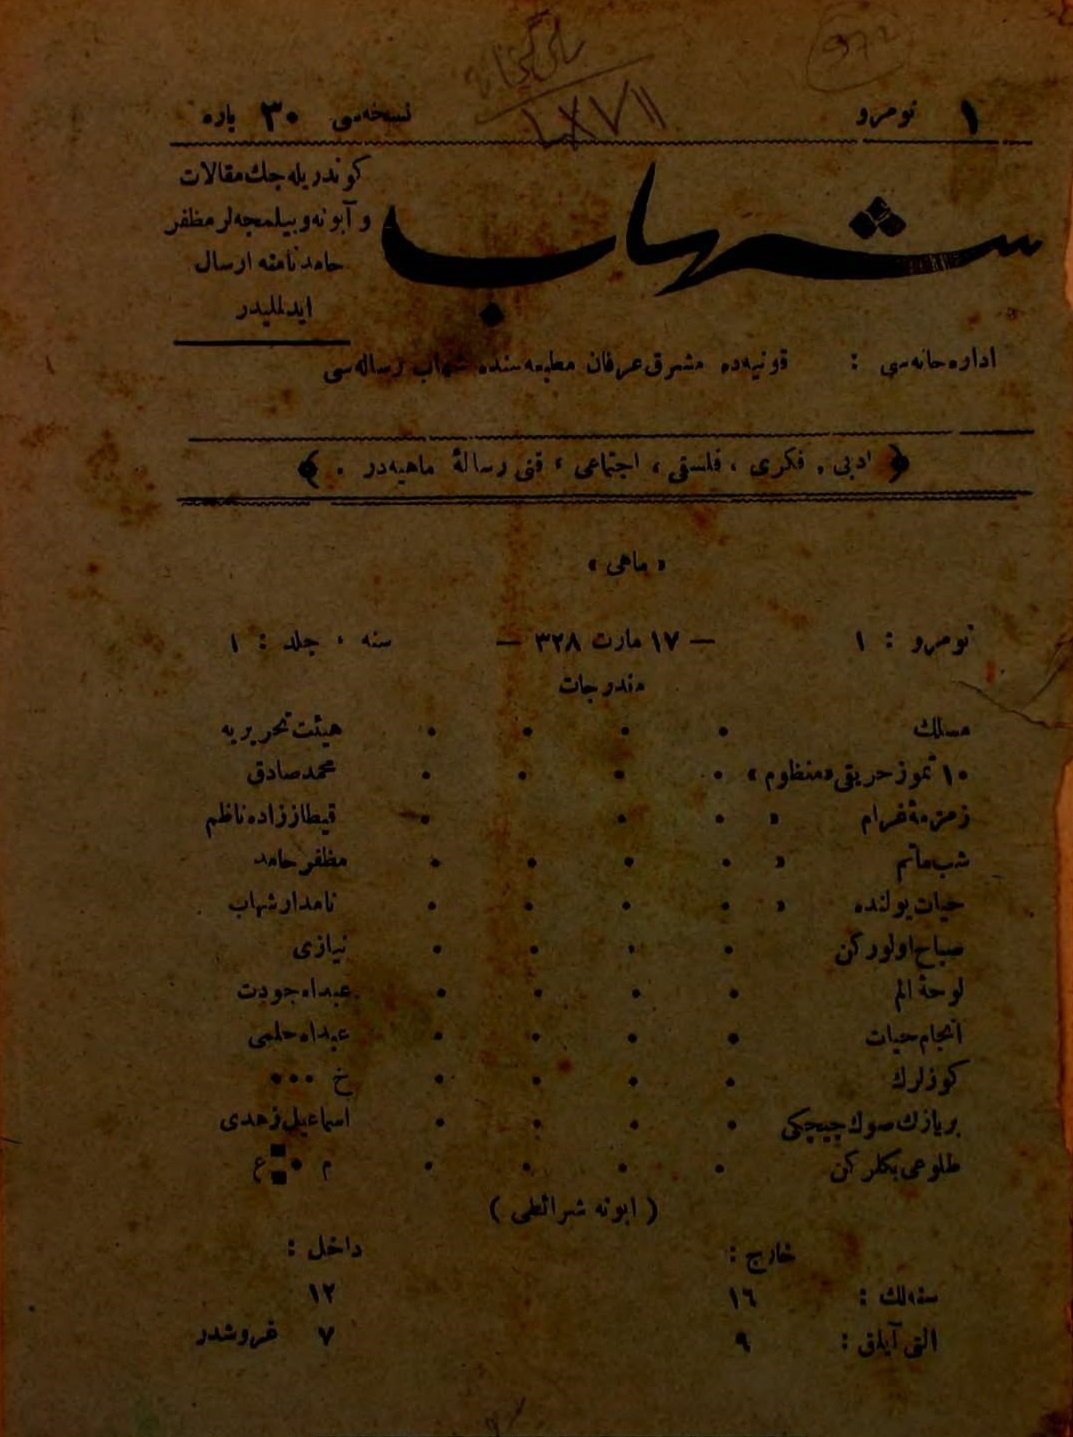 نومرو ١
نسخه‌سی ٣٠ پاره
شهاب
كوندریله‌جك مقالات
و آبونه و بیلمجه‌لر مظفر
حامد نامنه ارسال
ایدلملیدر
اداره‌خانه‌سی : قونیه‌ده مشرق عرفان مطبعه‌سنده شهاب رساله‌سی
﴿ ادبی ، فكری ، فلسفی ، اجتماعی ، فنی رسالهٔ ماهیه‌در . ﴾
« ماهی »
نومرو : ١ — ١٧ مارت ٣٢٨ — سنه ، جلد : ١
مندرجات
مسلك . . . . هیئت تحریریه
١٠ تموز حریقی «منظوم» . . . . محمد صادق
زمزمهٔ غرام « . . . قیطاززاده ناظم
شب ماتم « . . . . مظفر حامد
حیات یولنده « . . . . نامدار شهاب
صباح اولوركن . . . . نیازی
لوحهٔ الم . . . . عبدالله جودت
انجام حیات . . . . عبدالله حلمی
كوزلرك . . . . خ ...
بر یازك صوك چیچكی . . . . اسماعیل زهدی
طلوعی بكلركن . . . . م . ع
( ابونه شرائطی )
خارج : داخل :
سنه‌لك : ١٦ ١٢
التی آیلق : ٩ ٧ غروشدر